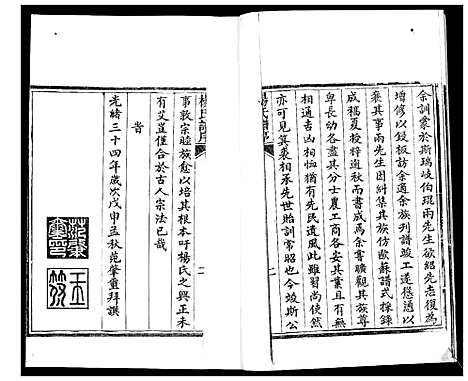 余訓蒙於斯瑞岐伯琨兩先生欲紹先志復為
增修以鋟板訪余適余族刋譜竣工遂慫通以
襄其事兩先生因糾集其族仿歐蘇譜式採錄
成稿夏校梓迨秋而書成為余嘗曠觀其族尊
卑長幼各盡其分士農工商各安其業且有無
相通吉凶相恤猶有先民遺風此雖習尚使然
亦可見箕裘相承先世貽訓常昭也今竣斯公
楊氏譜序
二
楊氏譜序
二
事敦宗睦族愈以培其根本吁楊氏之興正未
有艾豈僅合於古人宗法已哉
旹
光緒三十四年歲次戊申孟秋范肇重拜譔